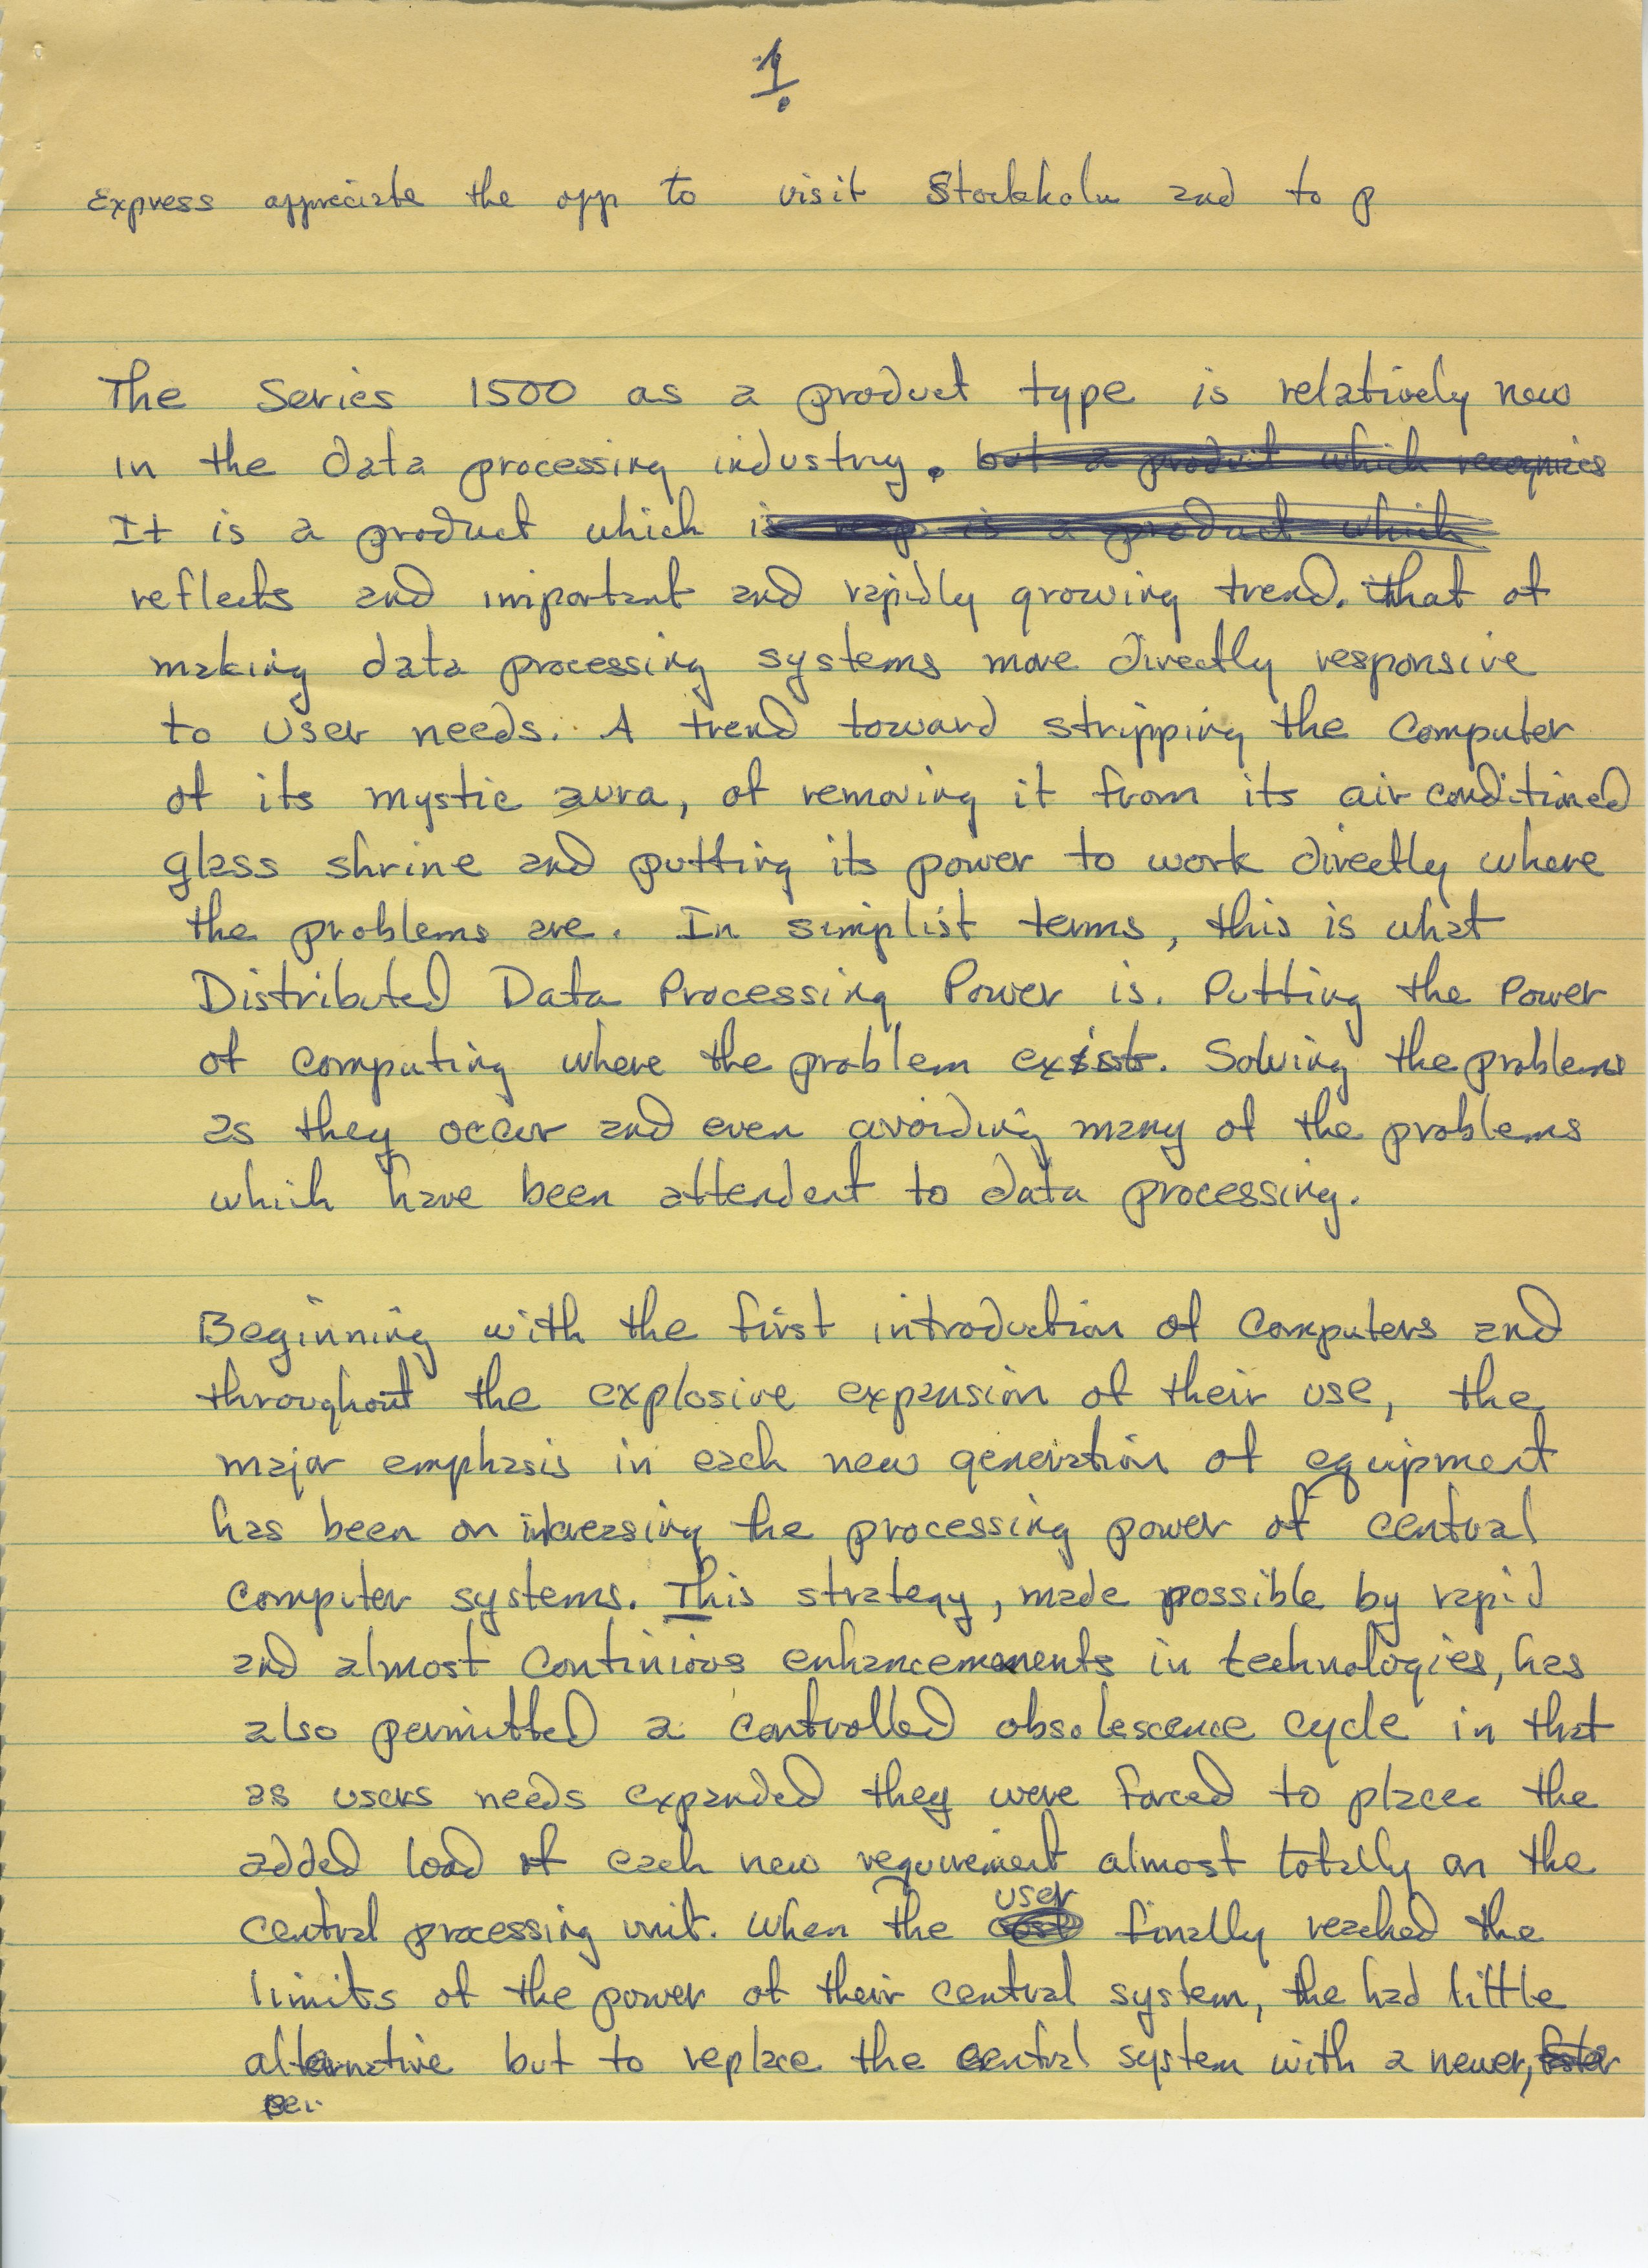 1.
Express appreciate the opp to visit Stockholm and to p
The Series 1500 as a product type is relatively new
in the data processing industry. but a product which recognizes
It is a product which is is a product which
reflects and important and rapidly growing trend. that of
making data processing systems more directly responsive
to user needs. A trend toward stripping the computer
of its mystic aura, of removing it from its air conditioned
glass shrine and putting its power to work directly where
the problems are. In simplist terms, this is what
Distributed Data Processing Power is. Putting the Power
of computing where the problem exists. Solving the problems
as they occur and even avoiding many of the problems
which have been attendent to data processing.
Beginning with the first introduction of computers and
throughout the explosive expansion of their use, the
major emphasis in each new generation of equipment
has been on increasing the processing power of central
computer systems. This strategy, made possible by rapid
and almost continious enhancements in technologies, has
also permitted a controlled obsolescence cycle in that
as users needs expanded they were forced to place the
added load of each new requirement almost totally on the
user
central processing unit. When the cost finally reached the
limits of the power of their central system, the had little
alternative but to replace the central system with a newer, faster